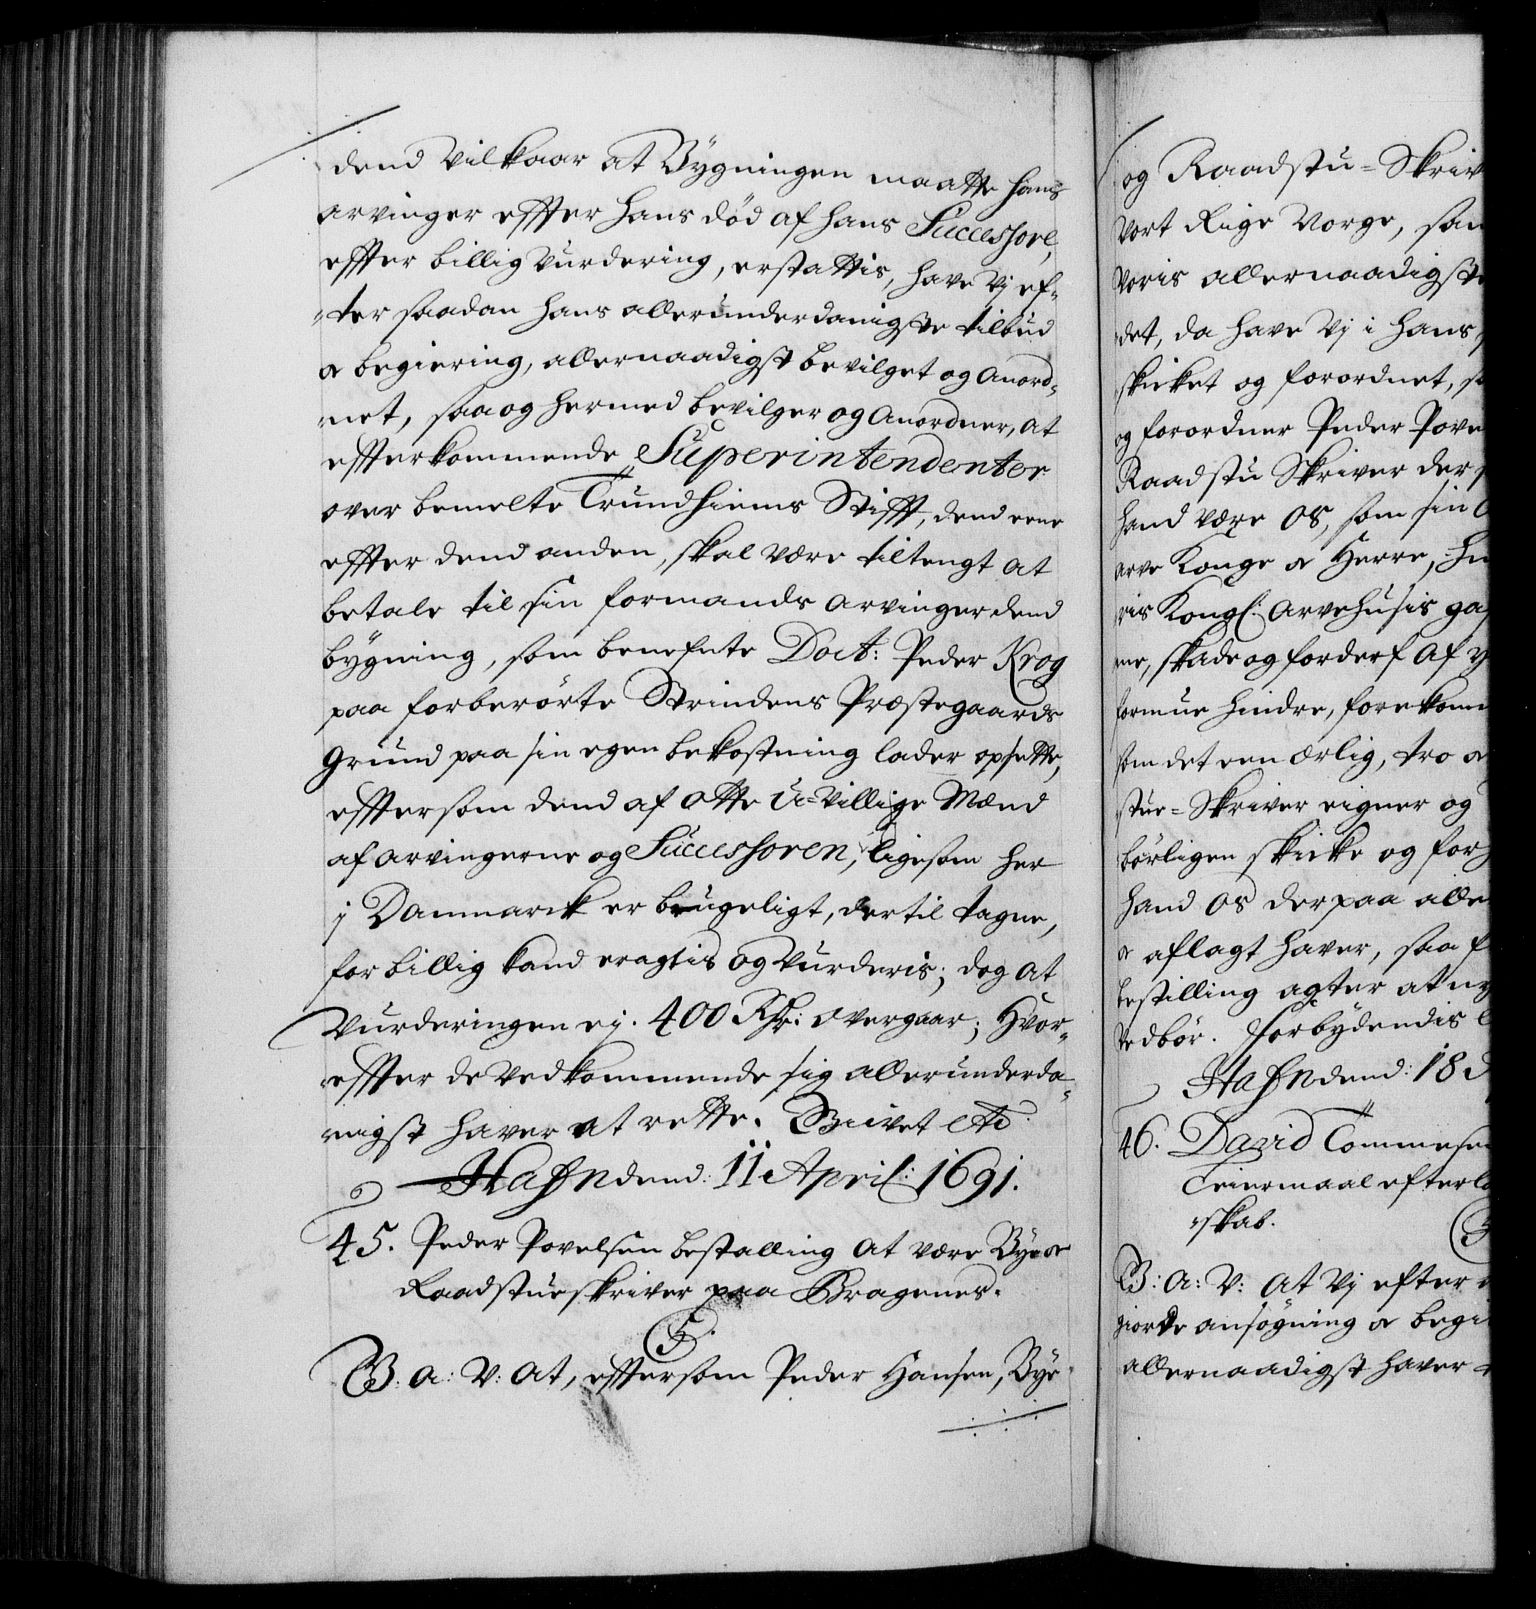 dend Vilkaar at Bygningen maatte hans
arvinger effter hans død af hans Successore,
effter billig Vurdering, erstattis, have Vj ef-
ter saadan hans allerunderdanigste tilbud
oc begiering, allernaadigst bevilget og Anord-
net, saa og hermed bevilger og Anordner, at
effterkommende Superintendenter
over bemelte Trundhiems Stifft, dend eene
effter dend anden, skal være tiltengt at
betale til sin formands arvinger dend
bygning, som benefnte Doct: Peder Krog
paa forberørte Strindens Præstegaards
Grund paa sin egen bekostning lader opsette,
efftersom dend af otte U-villige Mænd
af arvingerne og Successoren, ligesom her
j Danmarck er brugeligt, dertil tagne,
for billig kand eragtis og Vurderis; dog at
Vurderingen ej. 400 Rdr: overgaar; Hvor-
effter de Vedkommende sig allerunderda-
nigst haver at rette. Givet etc
Hafn dend: 11 April: 1691.
45. Peder Povelsen bestalling at være Bye oc
Raadstueskriver paa Bragenes.
C5.
G: a: V: at, efftersom Peder Hansen, Bye
og Raadstu-Skriv
Vort Rige Norge, som
Voris allernaadigste
det, da have Vj i hans
skicket og forordnet, s
og forordner Peder Pove
Raadstu Skriver der
hand være OS, som sin
arve Konge oc Herre, Hu
ris Kongl: Arvehusis ga
me, skade og forderf af y
formue hindre, forekom
som det een ærlig, tro oc
stue-Skriver eigner og
børligen skicke og forh
hand OS derpaa alle
oc aflagt haver, saa f
bestilling agter at ny
Vedbør. Forbydendis
Hafn dend: 18
46. David Tommesen
Leiermaal efterla
skab.
G: A: V: At Vj efter
giorde ansøgning oc begi
allernaadigst haver